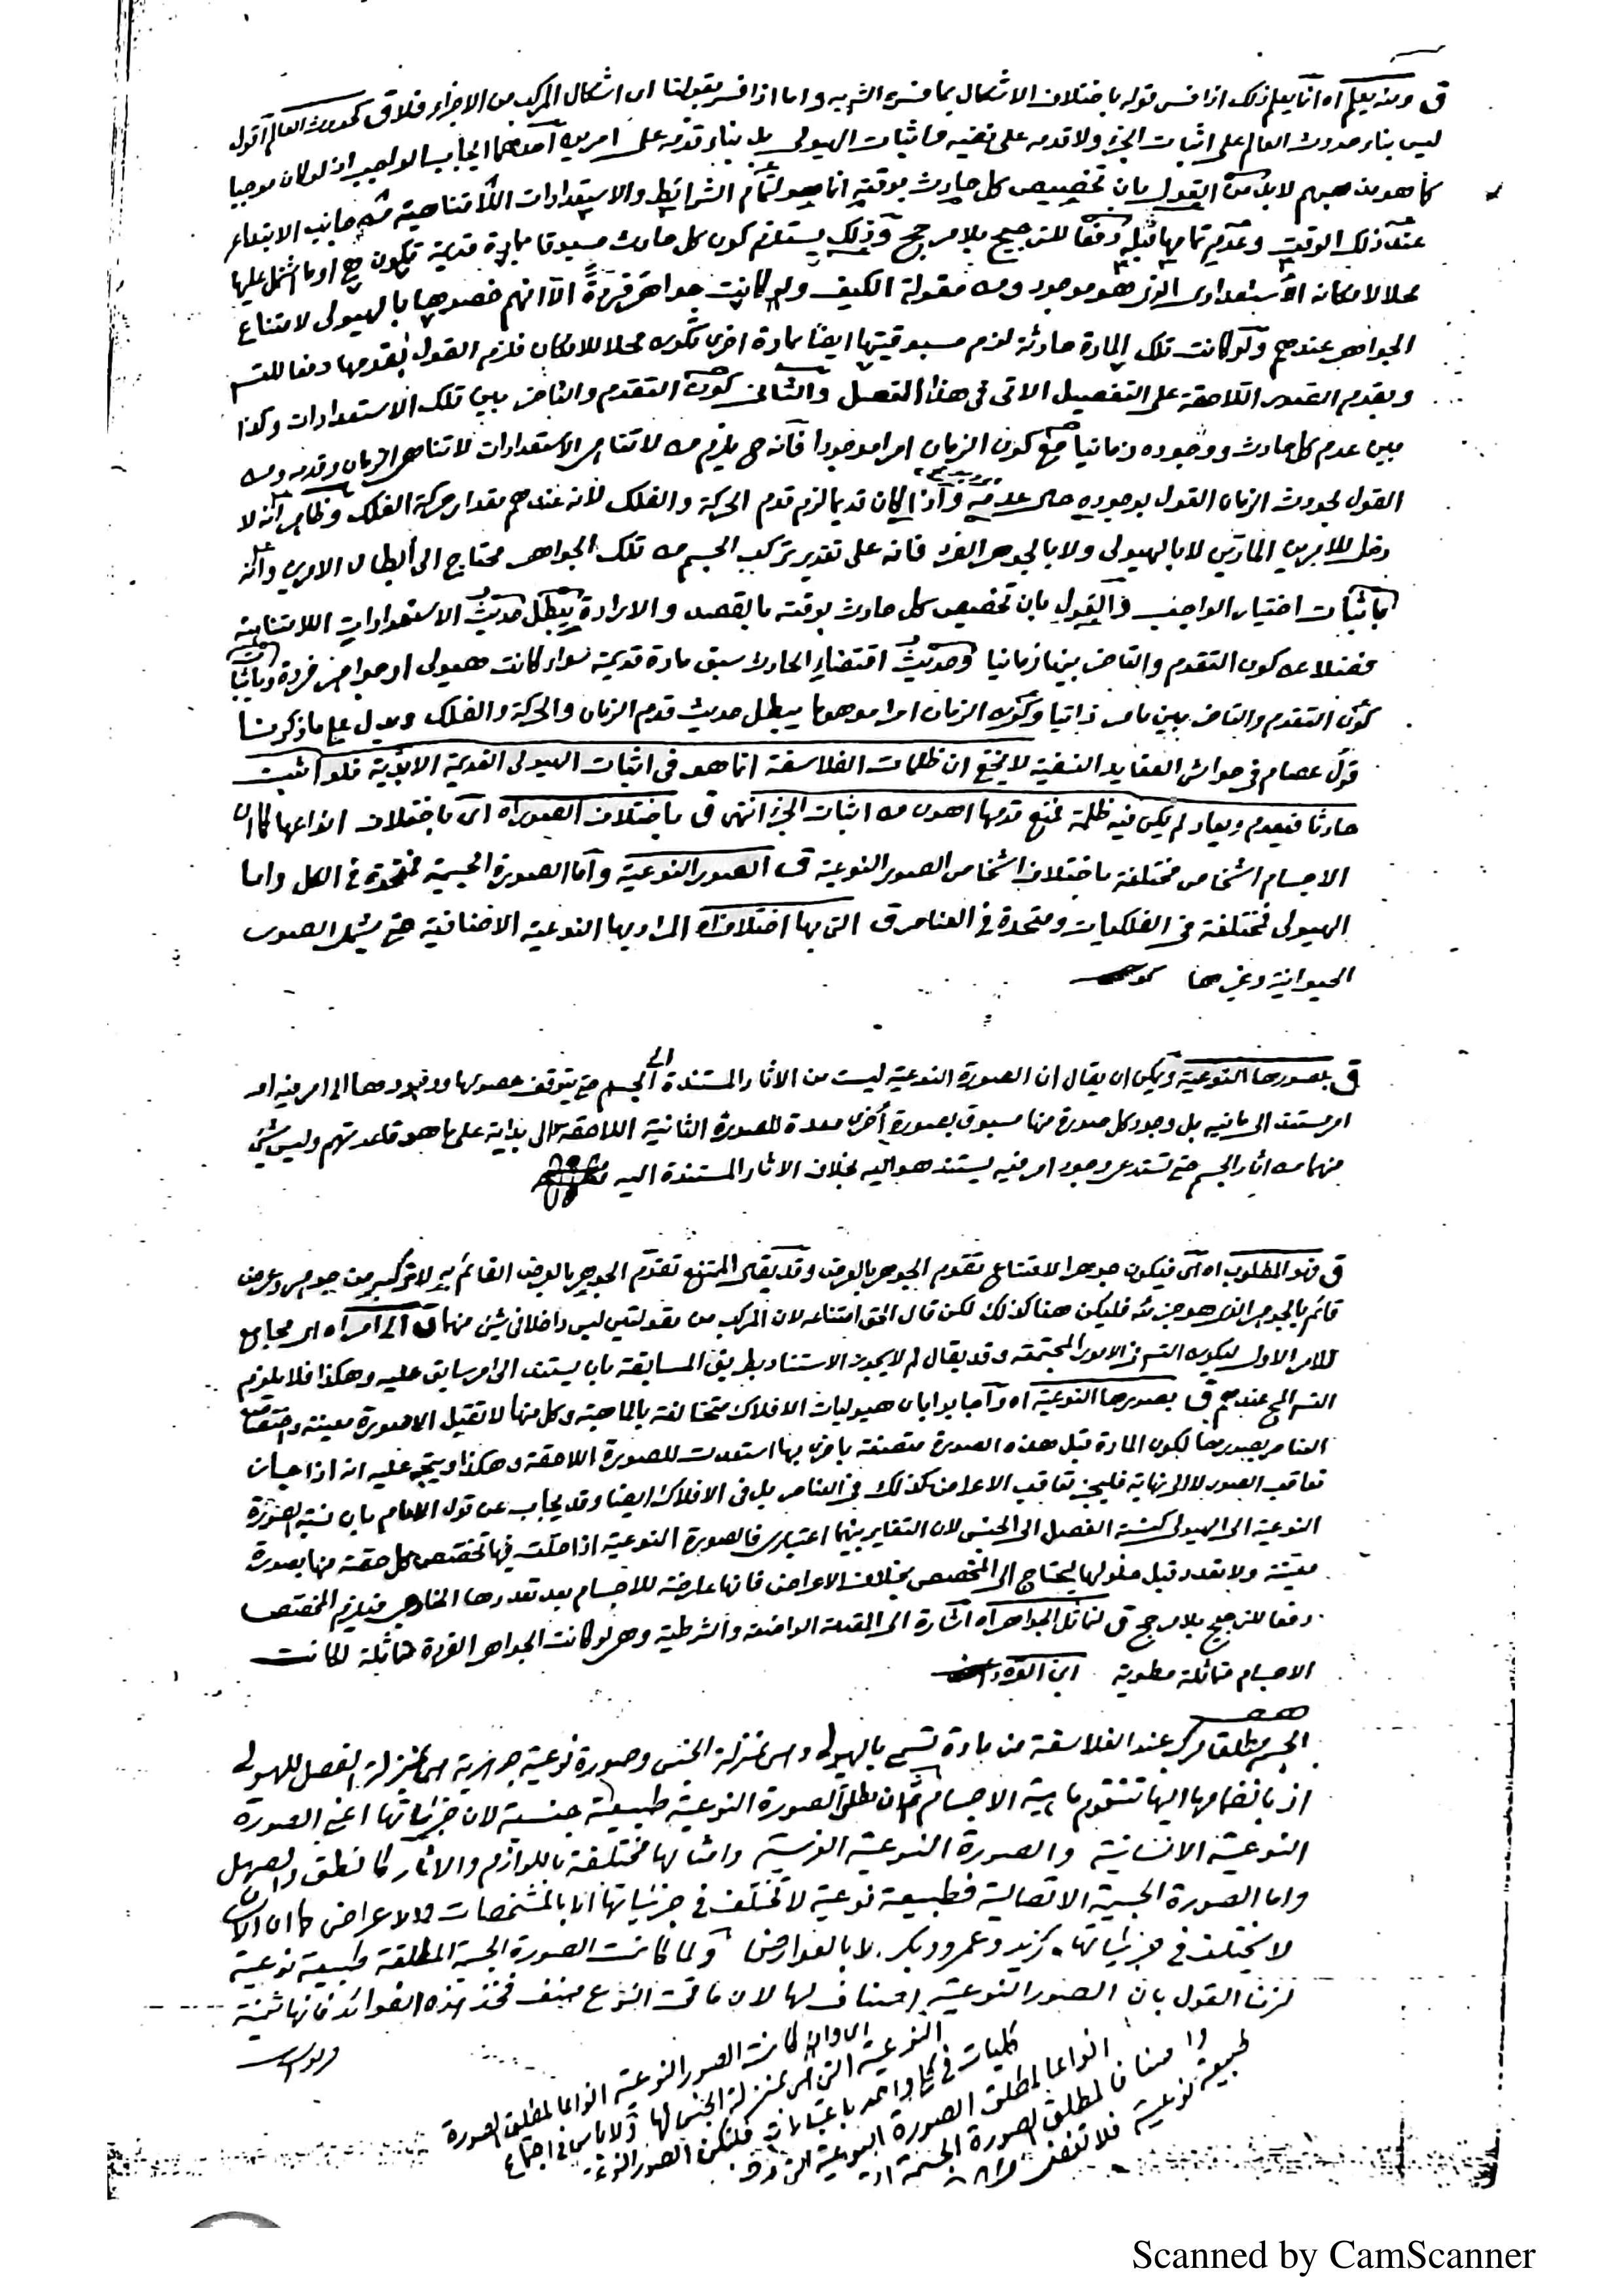 ق ومنه يعلم اه انما يعلم ذلك اذا فسر قوله باختلاف الاشكال بما فسره الشربه واما اذا فسر بقولنا اى اشكال المركب من الاجزاء فلا ق كحدوث العالم اقول
ليس بناء حدوث العالم على اثبات الجزء ولا قدمه على نفيه واثبات الهيولى بل بناء قدمه على امرين احدهما ايجاب الواجب اذ لو كان موجبا
كما هو مذهبهم لابد من القول بان تخصيص كل حادث بوقته انما هو لتمام الشرائط والاستعدادات اللامتناهية من جانب الابتداء
عند ذلك الوقت وعدم تمامها قبله دفعا للترجيح بلا مرجح وذلك يستلزم كون كل حادث مسبوقا بمادة قديمة تكون هى او ما اشتمل عليها
محلا لامكانه الاستعدادى الذى هو موجود ومن مقولة الكيف ولو كانت جواهر فردة الا انهم خصوها بالهيولى لامتناع
الجواهر عندهم ولو كانت تلك المادة حادثة لزم مسبوقيتها ايضا بمادة اخرى تكون محلا للامكان فلزم القول بقدمها دفعا للتس
وبقدم اللاحقة على التفصيل الاتى فى هذا الفصل والثانى كون التقدم والتاخر بين تلك الاستعدادات وكذا
بين عدم كل حادث ووجوده زمانيا مع كون الزمان امرا موجودا فانه ح يلزم من لاتناهى الاستعدادات لاتناهى الزمان وقدمه ومن
القول بحدوث الزمان القول بوجوده حال عدمه واذا كان قديما لزم قدم الحركة والفلك لانه عندهم مقدار حركة الفلك وظاهر انه لا
دخل للامرين المادتين لا بالهيولى ولا بالجوهر الفرد فانه على تقدير تركب الجسم من تلك الجواهر محتاج الى ابطال الامرين وانه
باثبات اختيار الواجب والقول بان تخصيص كل حادث بوقته بالقصد والارادة يبطل حديث الاستعدادات اللامتناهية
فضلا عن كون التقدم والتاخر بينها زمانيا وحديث اقتضاء الحادث سبق مادة قديمة سواء كانت هيولى او جواهر فردة وباثبات
كون التقدم والتاخر بين ذاتيا وكون الزمان امرا موهوما يبطل حديث قدم الزمان والحركة والفلك ويدل على ما ذكرنا
قول عصام فى حواشى العقايد النسفية لا يخفى ان ظلمات الفلاسفة انما هو فى اثبات الهيولى القديمة الابدية فلو اثبت
حادثا فيعدم ويعاد لم يكن فيه ظلمة فمنع قدمها اهون من اثبات الجزء انتهى ق باختلاف الصور اه اى باختلاف انواعها كما ان
الاجسام اشخاص مختلفة باختلاف اشخاص الصور النوعية ق الصور النوعية واما الصورة الجسمية فمتحدة فى الكل واما
الهيولى فمختلفة فى الفلكيات ومتحدة فى العناصر ق التى بها اختلاف اه المراد بها النوعية الاضافية حتى يشمل الصور
الحيوانية وغيرها
ق بصورها النوعية ويمكن ان يقال ان الصورة النوعية ليست من الاثار المستندة الى الجسم حتى يتوقف حصولها ووجودها الى امر فيه او
امر مستند الى ما فيه بل وجود كل صورة منها مسبوق بصورة اخرى معدة للصورة الثانية اللاحقة لا الى بداية على ما هو قاعدتهم وليس شئ
منهما من اثار الجسم حتى تستدعى وجود امر فيه يستند هو اليه بخلاف الاثار المستندة اليه
ق فهو المطلوب اه اى فيكون جوهرا لامتناع تقوم الجوهر بالعرض وقد يقال الممتنع تقوم الجوهر بالعرض القائم به لا تركبه من جوهر وعرض
قائم بالجوهر الذى هو جزئه فليكن هنا كذلك لكن قال الحق امتناعه لان المركب من مقولتين ليس داخلا فى شئ منهما ق الى امر اه اى مجامع
للامر الاول ليكون التس فى الامور المجتمعة وقد يقال لم لا يجوز الاستناد بطريق المسابقة بان يستند الى امر سابق عليه وهكذا فلا يلزم
التس المح عندهم ق بصورها النوعية اه واجابوا بان هيوليات الافلاك متخالفة بالماهية وكل منها لا تقبل الا صورة معينة واختصاص
العناصر بصورها لكون المادة قبل هذه الصورة متصفة باخرى بها استعدت للصورة اللاحقة وهكذا ويتجه عليه انه اذا جاز
تعاقب الصور لا الى نهاية فليجز تعاقب الاعراض كذلك فى العناصر بل فى الافلاك ايضا وقد يجاب عن قول الامام بان نسبة الصورة
النوعية الى الهيولى كنسبة الفصل الى الجنس لان التغاير بينهما اعتبارى فالصورة النوعية اذا حلت فيها تختص كل حصة منها بصورة
معينة ولا تعدد قبل حلولها ليحتاج الى المخصص بخلاف الاعراض فانها عارضة للاجسام بعد تعددها الخارجى فيلزم المخصص
دفعا للترجيح بلا مرجح ق لتماثل الجواهر اه اشارة الى المقدمة الواضعة والشرطية وهى لو كانت الجواهر الفردة متماثلة لكانت
الاجسام متماثلة مطوية
الجسم مطلقا مركب عند الفلاسفة من مادة تسمى بالهيولى وهى بمنزلة الجنس وصورة نوعية جوهرية هى بمنزلة الفصل للهيولى
اذ بانضمامها اليها تتقوم ماهية الاجسام ثم ان مطلق الصورة النوعية طبيعة جنسية لان جزئياتها اعنى الصورة
النوعية الانسانية والصورة النوعية الفرسية وامثالها مختلفة باللوازم والاثار كالنطق والصهيل
واما الصورة الجسمية الاتصالية فطبيعة نوعية لا تختلف فى جزئياتها الا بالمشخصات والاعراض كما ان الانسان
لا يختلف فى جزئياتها كزيد وعمرو وبكر الا بالعوارض ولما كانت الصورة الجسمية المطلقة طبيعة نوعية
لزمنا القول بان الصور النوعية اصناف لها لان ما تحت النوع صنف فخذ هذه الفوائد فانها ثمينة
كانت الصور النوعية انواعا لمطلق الصورة
النوعية التى هى بمنزلة الجنس لها ولا باس فى اجتماع
كليات فى واحد باعتبارات فلتكن الصور النوعية
انواعا لمطلق الصورة النوعية
واصنافا لمطلق الصورة الجسمية
طبيعة نوعية فلا تغفل
Scanned by CamScanner